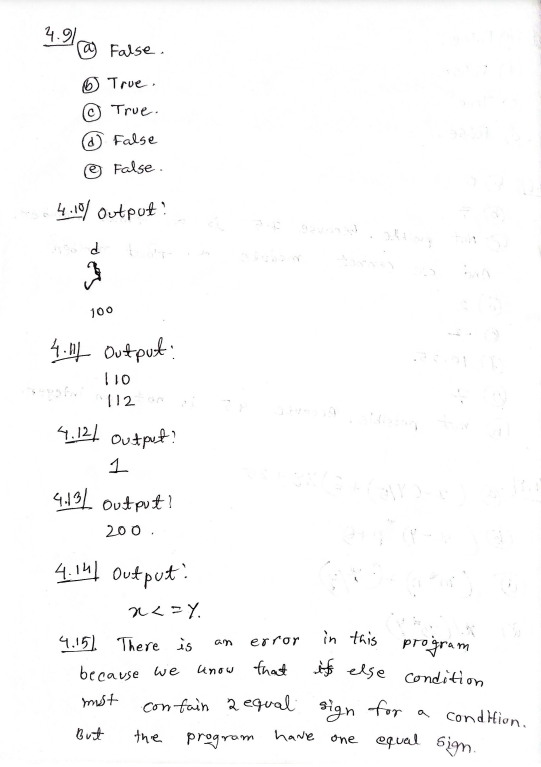 4.9/ (a) False.
(b) True.
(c) True.
(d) False
(e) False.
4.10/ Output:
d
100
4.11/ Output:
110
112
4.12/ Output:
1
4.13/ Output:
200.
4.14/ Output:
x<=y.
4.15/. There is an error in this program
because we know that if else condition
must contain 2 equal sign for a condition.
But the program have one equal sign.